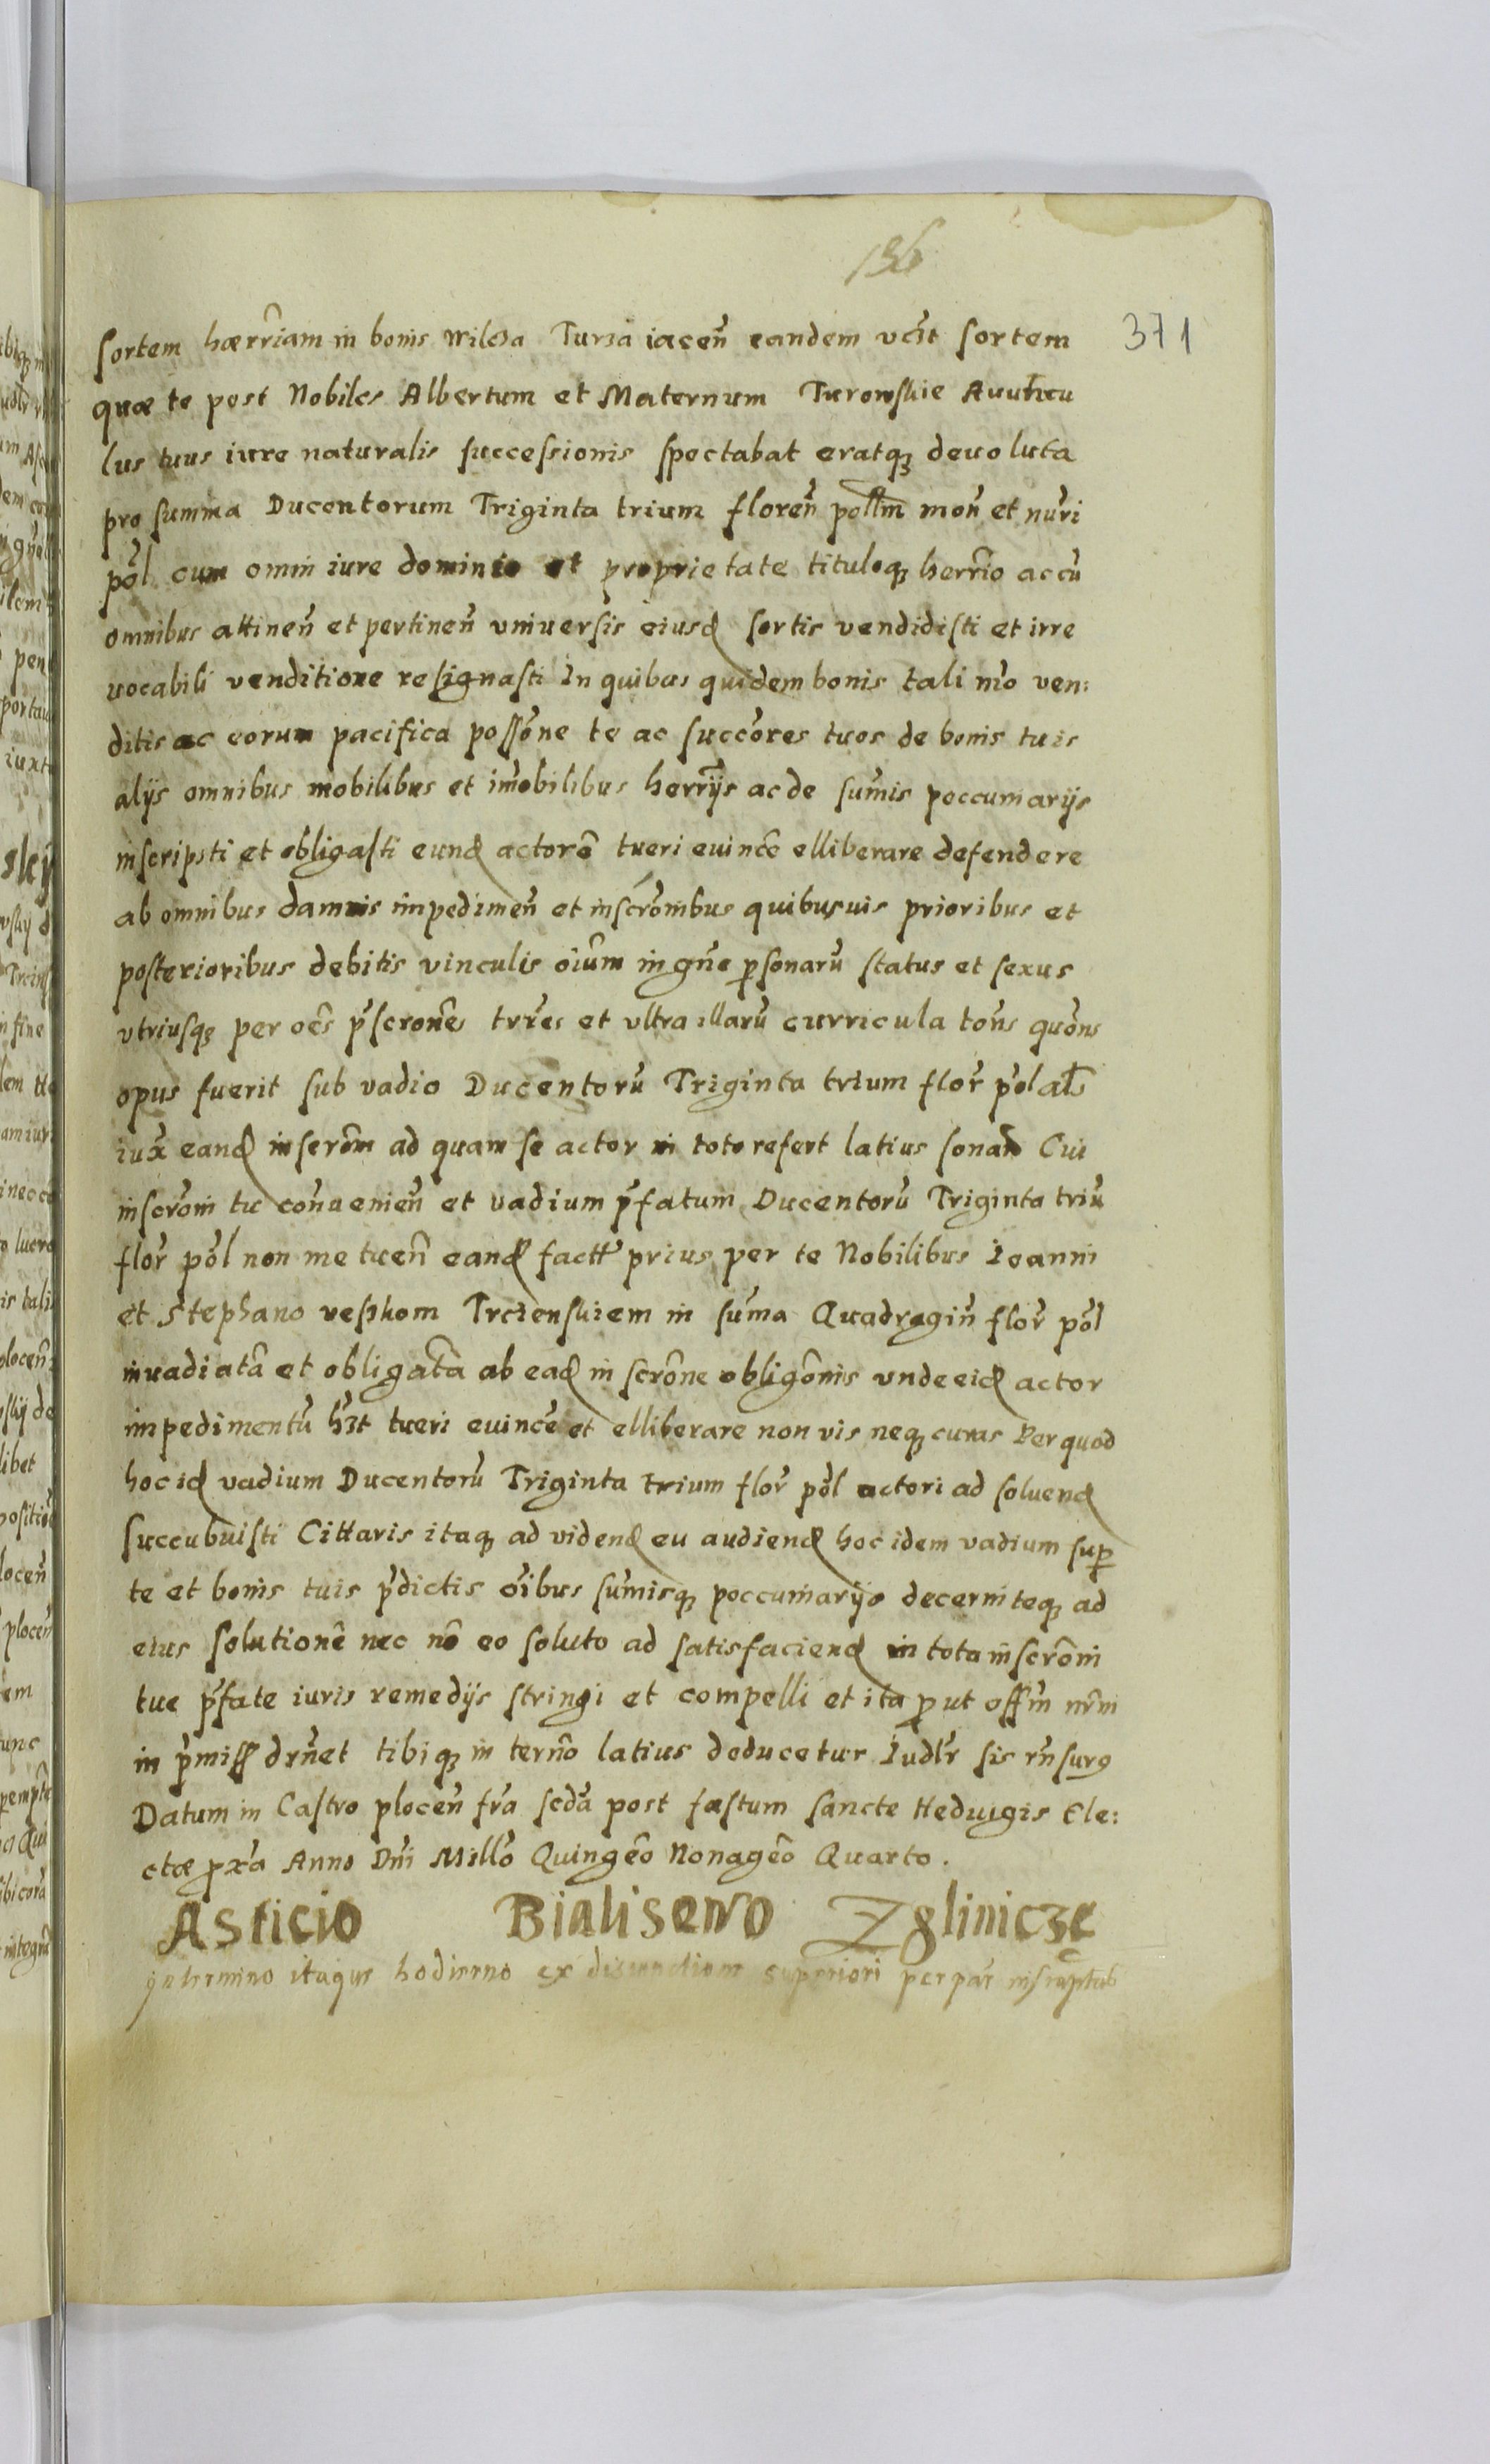 186
371
sortem hærr̃iam in bonis Wilcza Turza iaceñ eandem vc̃it sortem
quæ te post Nobiles Albertum et Maternum Turowskie Auuncu
lus tuus iure naturalis successionis spectabat eratq₃ deuoluta
pro summa Ducentorum Triginta trium floreñ mon̄ et nũri
põl cum omni iure dominio et proprietate tituloq₃ herr̃io ac cũ
omnibus attineñ et pertineñ vniuersis eiusd sortis vendidisti et irre
uocabili venditione resignasti In quibus quidem bonis tali mõ ven:
ditis ac eorum pacifica possõne te ac succõres tuos de bonis tuis
alijs omnibus mobilibus et im̃obilibus herr̃ijs ac de sum̃is peccuniarijs
inscripsti et obligasti eund actorẽ tueri euincẽ elliberare defendere
ab omnibus damnis impedimeñ et inscrõnibus quibusuis prioribus et
posterioribus debitis vinculis oĩum in gñe ꝑsonarũ status et sexus
vtriusq₃ per oẽs p̃scronẽs trr̃es et vltra illarũ curricula toñs quõns
opus fuerit sub vadio Ducentorũ Triginta trium flor̃ põl als̃
iux̃ eand inscrõm ad quam se actor in toto refert latius sonañ Cui
inscrõni tu coñuenieñ et vadium p̃fatum Ducentorũ Triginta triũ
flor̃ põl non metueñ eand prius per te Nobilibus Ioanni
et Stephano Trcienskiem in sum̃a Quadragiñ flor̃ põl
inuadiatã et obligatã ab ead inscrõne obligõnis vnde eid actor
impedimentũ h̃et tueri euincẽ et elliberare non vis neq₃ curas Per quod
hoc id vadium Ducentorũ Triginta trium flor̃ põl actori ad soluend
succubuisti Cittaris itaq₃ ad vidend eu audiend hoc idem vadium suꝑ
te et bonis tuis p̃dictis oĩbus sum̃isq₃ peccuniarijs decerni teq₃ ad
eius solutionẽ nec nõ eo soluto ad satisfaciend in tota inscrõni
tue p̃fate iuris remedijs stringi et compelli et ita ꝓut offm̃ nr̃m
in p̃miss dr̃net tibiq₃ in terñõ latius deducetur Iudlr̃ sis rñsurꝰ
Datum in Castro ploceñ fr̃a scdã post festum sancte Heduigis Ele:
ctæ ꝓx̃a Anno Dñi Millõ Quingẽo Nonagẽo Quarto.
Asticio Bialisewo Zglinicze
In termino itaque hodierno ex superiori per par̃